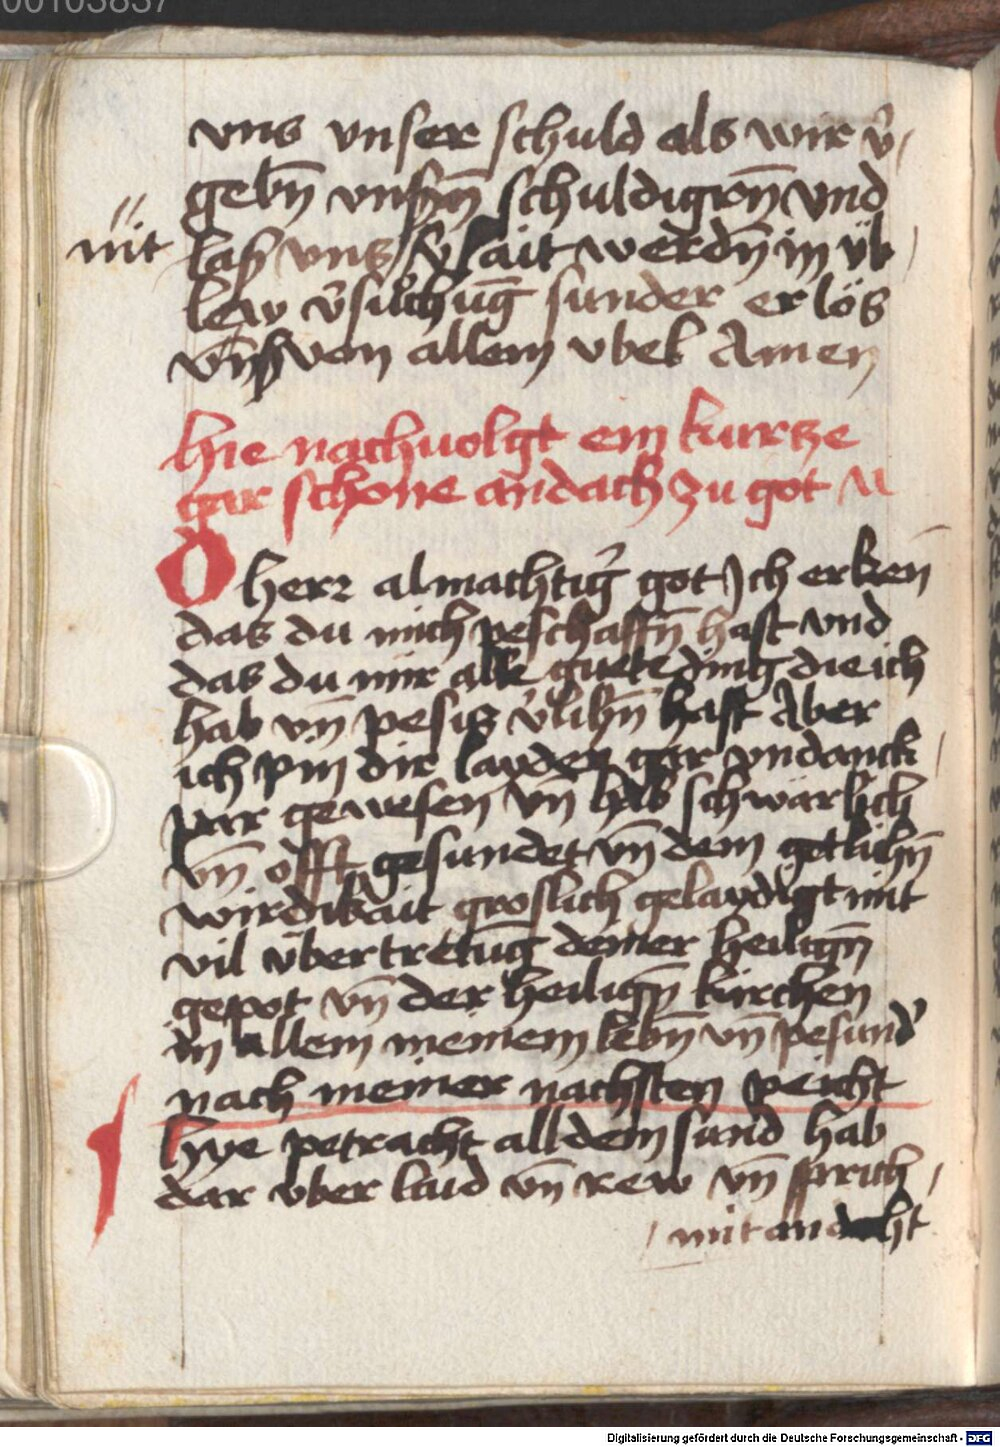 00103837
vns vnser schuld als wir v̾
gebn̄ vnsſn̄ schuldigrn̄ vnd
nit
laß vns v̾lait werdn̄ in üb
lew v̾suͦchūg sunder erlös
vn̄ß von allem vbel Amen
hie nachuolgt ein kurtze
gar schone andacht zu got
O herr almachtig̾ got Ich erken̄
das du mich peschaffn̄ hast vnd
das du mir alle guete ding die ich
hab vn̄ pesitz v̾lihn̄ hast Aber
ich pin dir layder gar vndanck
par gewesen vn̄ hab schwärlich
vn̄ offt gesundet vn̄ dein getlichn̄
wirdikait groslich gelaydigt mit
vil übertretūg deiner heilign̄
gepot vn̄ der heilign̄ kirchen
in allem meinem lebn̄ vn̄ pesund̾
nach meiner nachsten peicht
hye petracht all dein sund hab
dar vber laid vn̄ rew vn̄ sprich
mit andacht
Digitalisierung gefördert durch die Deutsche Forschungsgemeinschaft - DFG